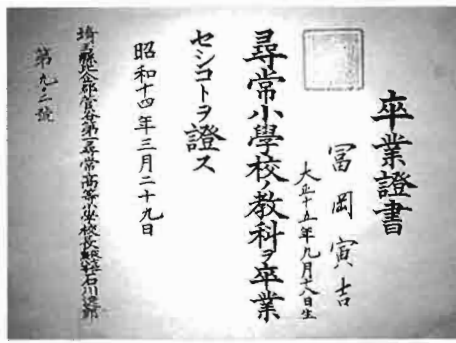 卒業證書
冨岡寅吉
大正十五年九月 日生
尋常小學校ノ教科ヲ卒業
セシコトヲ證ス
昭和十四年三月二十九日
埼玉縣比企郡菅谷第一尋常高等小學校長 石川
第九二號